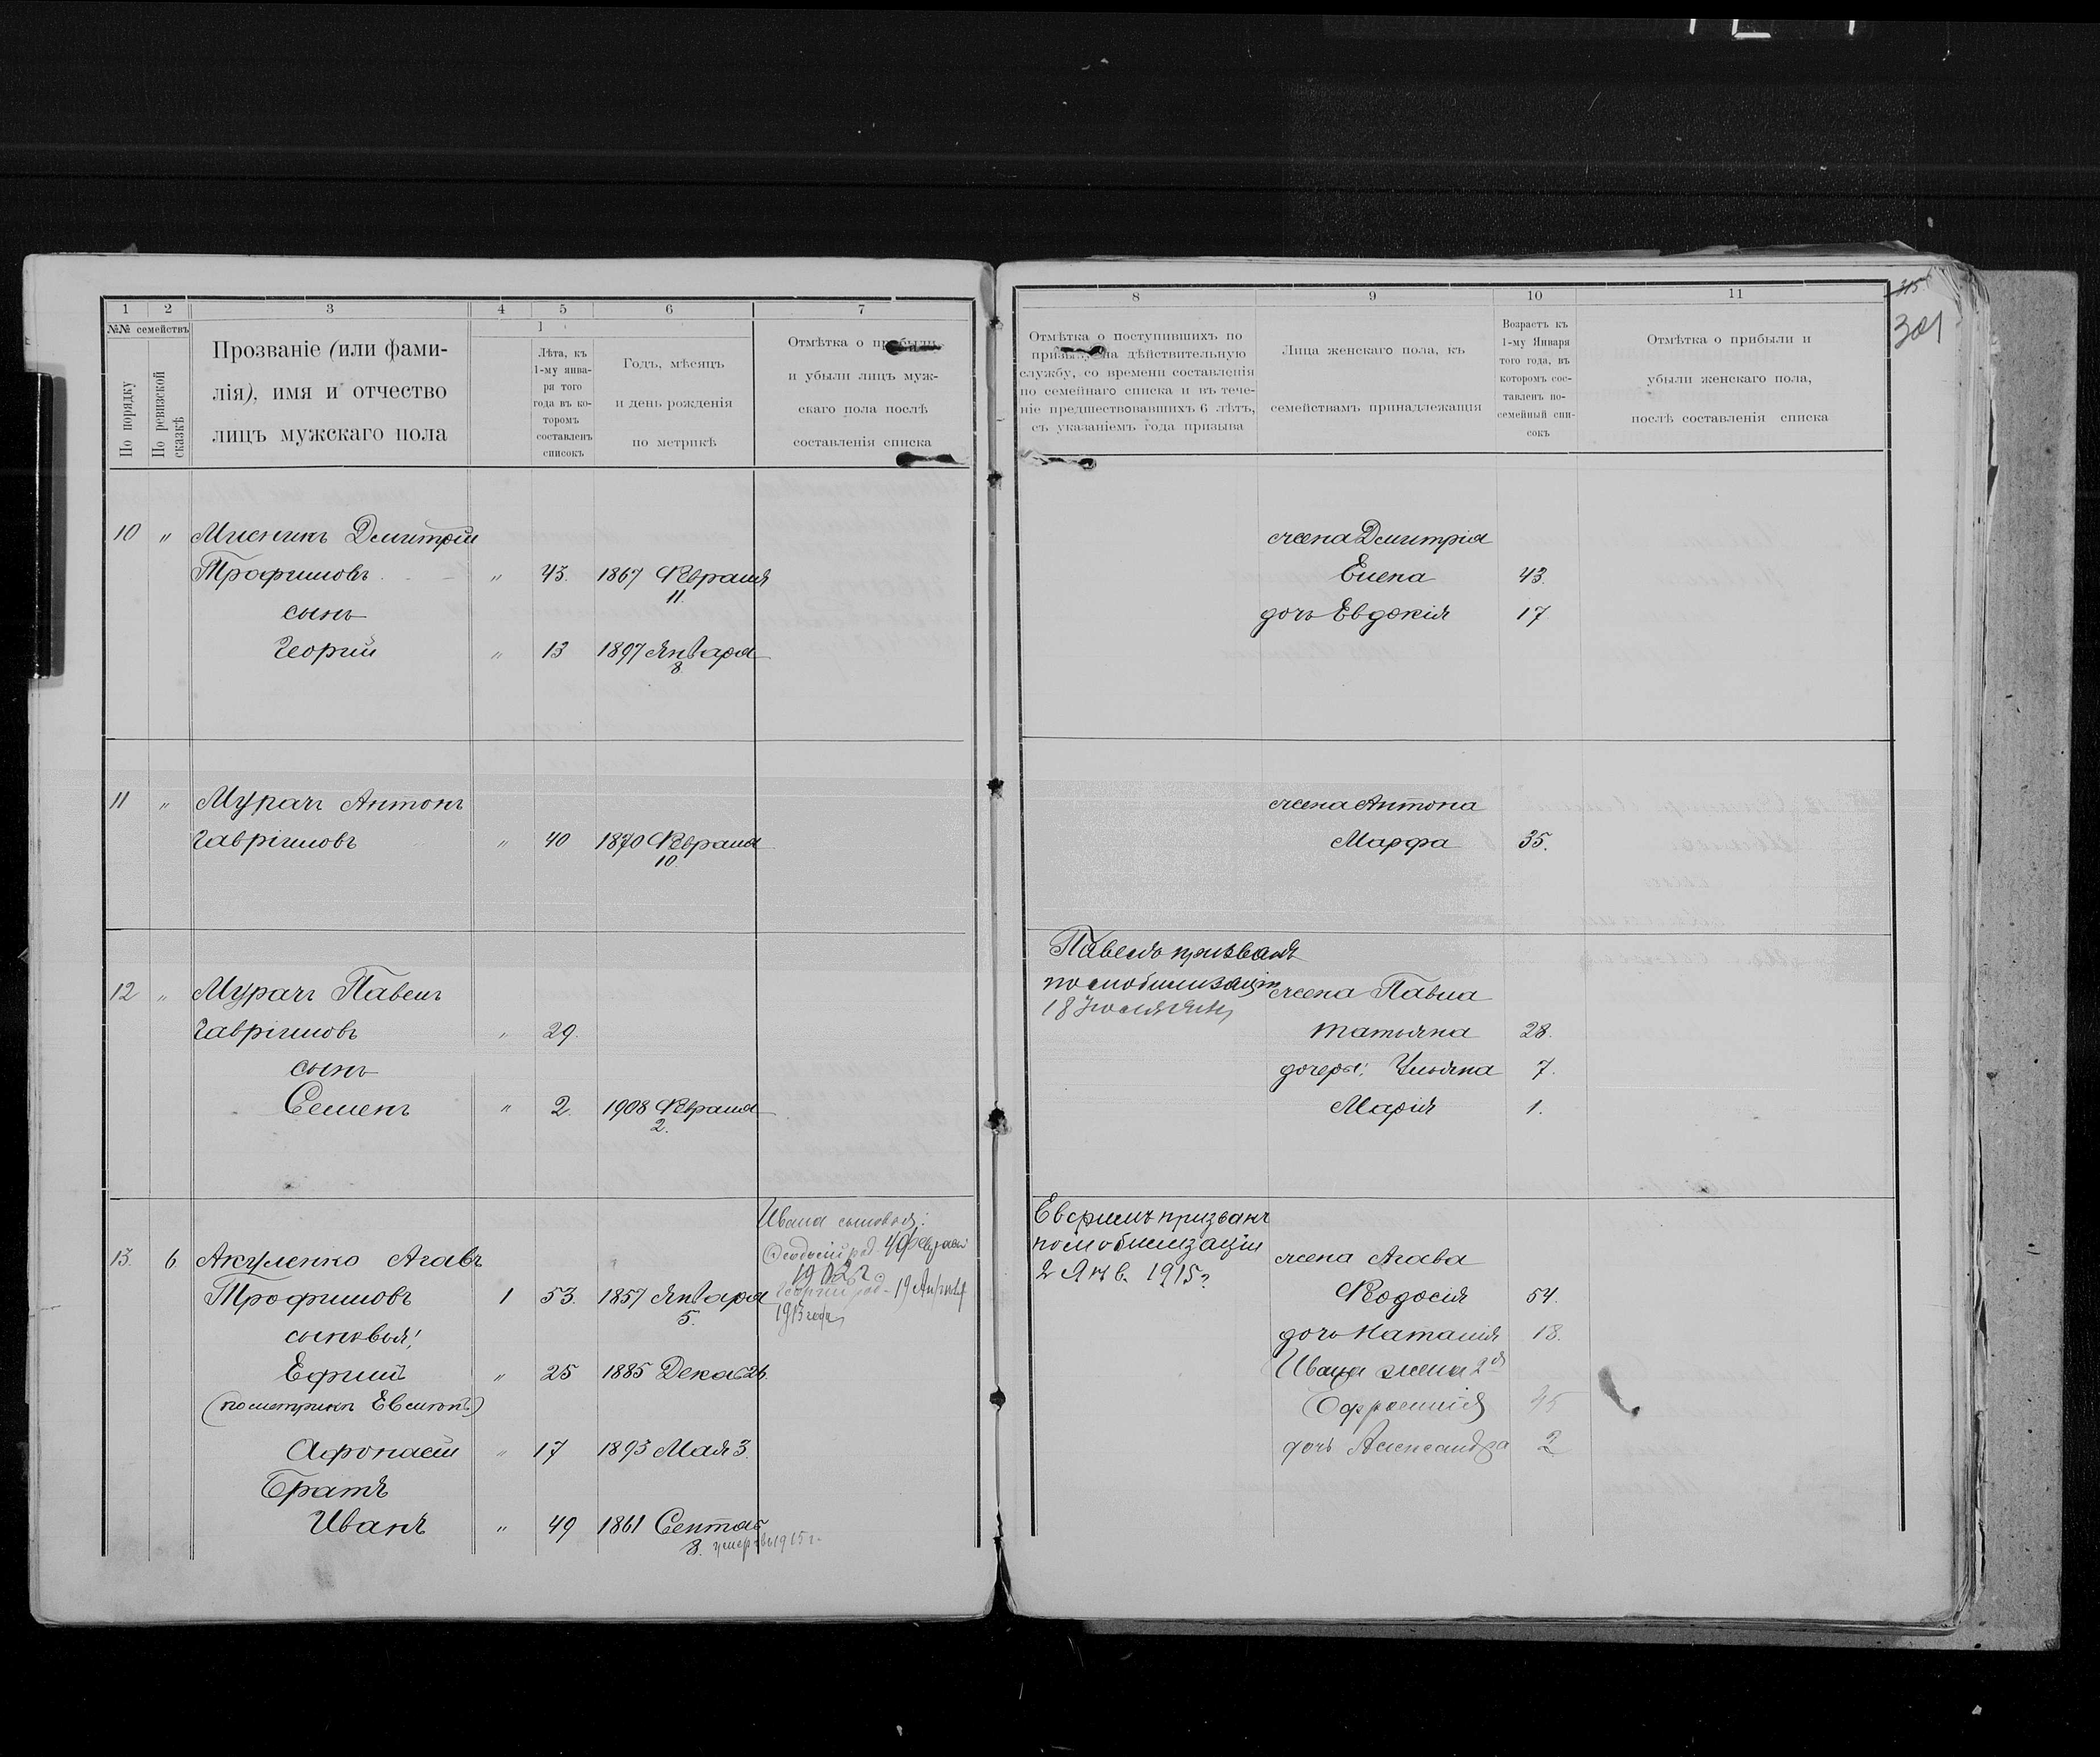 315
301
1 2 3 4 5 6 7
№№ семействъ
По порядку
По ревизской сказкѣ
Прозваніе (или фами-
лія), имя и отчество
лицъ мужскаго пола
Лѣта, къ
1-му янва-
ря того
года въ ко-
торомъ
составленъ
списокъ
Годъ, мѣсяцъ
и день рожденія
по метрикѣ
Отмѣтка о прибыли
и убыли лицъ муж-
скаго пола послѣ
составленія списка
10 " Мисникъ Дмитрій
Трофимовъ " 43. 1867 Февраля
11.
сынъ
Георгій " 13 1897 Января
8.
11 " Мурачъ Антонъ
Гавріиловъ " 40 1870 Февраля
10.
12 " Мурачъ Павелъ
Гавріиловъ " 29.
сынъ
Семенъ " 2. 1908 Февраля
2.
Ивана сыновья:
Феодосій род. 4 Февраля
1912 г.
13. 6 Акуленко Агавъ
Трофимовъ 1 53. 1857 Января
5.
Георгій род. 19 Апрѣля
1913 года
сыновья:
Ефимъ " 25 1885 Декаб 26.
(по метрикѣ Евсимъ)
Афонасій " 17 1893 Мая 3.
Братъ
Иванъ " 49 1861 Сентяб
8. умеръ въ 1915 г.
8 9 10 11
Отмѣтка о поступившихъ по
призыву на дѣйствительную
службу, со времени составленія
по семейнаго списка и въ тече-
ніе предшествовавшихъ 6 лѣтъ,
съ указаніемъ года призыва
Лица женскаго пола, къ
семействамъ принадлежащія
Возрастъ къ
1-му Января
того года, въ
которомъ сос-
тавленъ по-
семейный спи-
сокъ
Отмѣтка о прибыли и
убыли женскаго пола,
послѣ составленія списка
жена Дмитрія
Елена 43.
дочь Евдокія 17
жена Антона
Марфа 35.
Павелъ призванъ
по мобилизаціи
18 Іюля
жена Павла
Татьяна 28.
дочери: Ульяна 7.
Марія 1.
Евфимъ призванъ
по мобилизаціи
2 Янв. 1915 г.
жена Агава
Феодосія 54.
дочь Наталія 18.
Ивана жена 2я
Ефросинія 45
дочь Александра 2